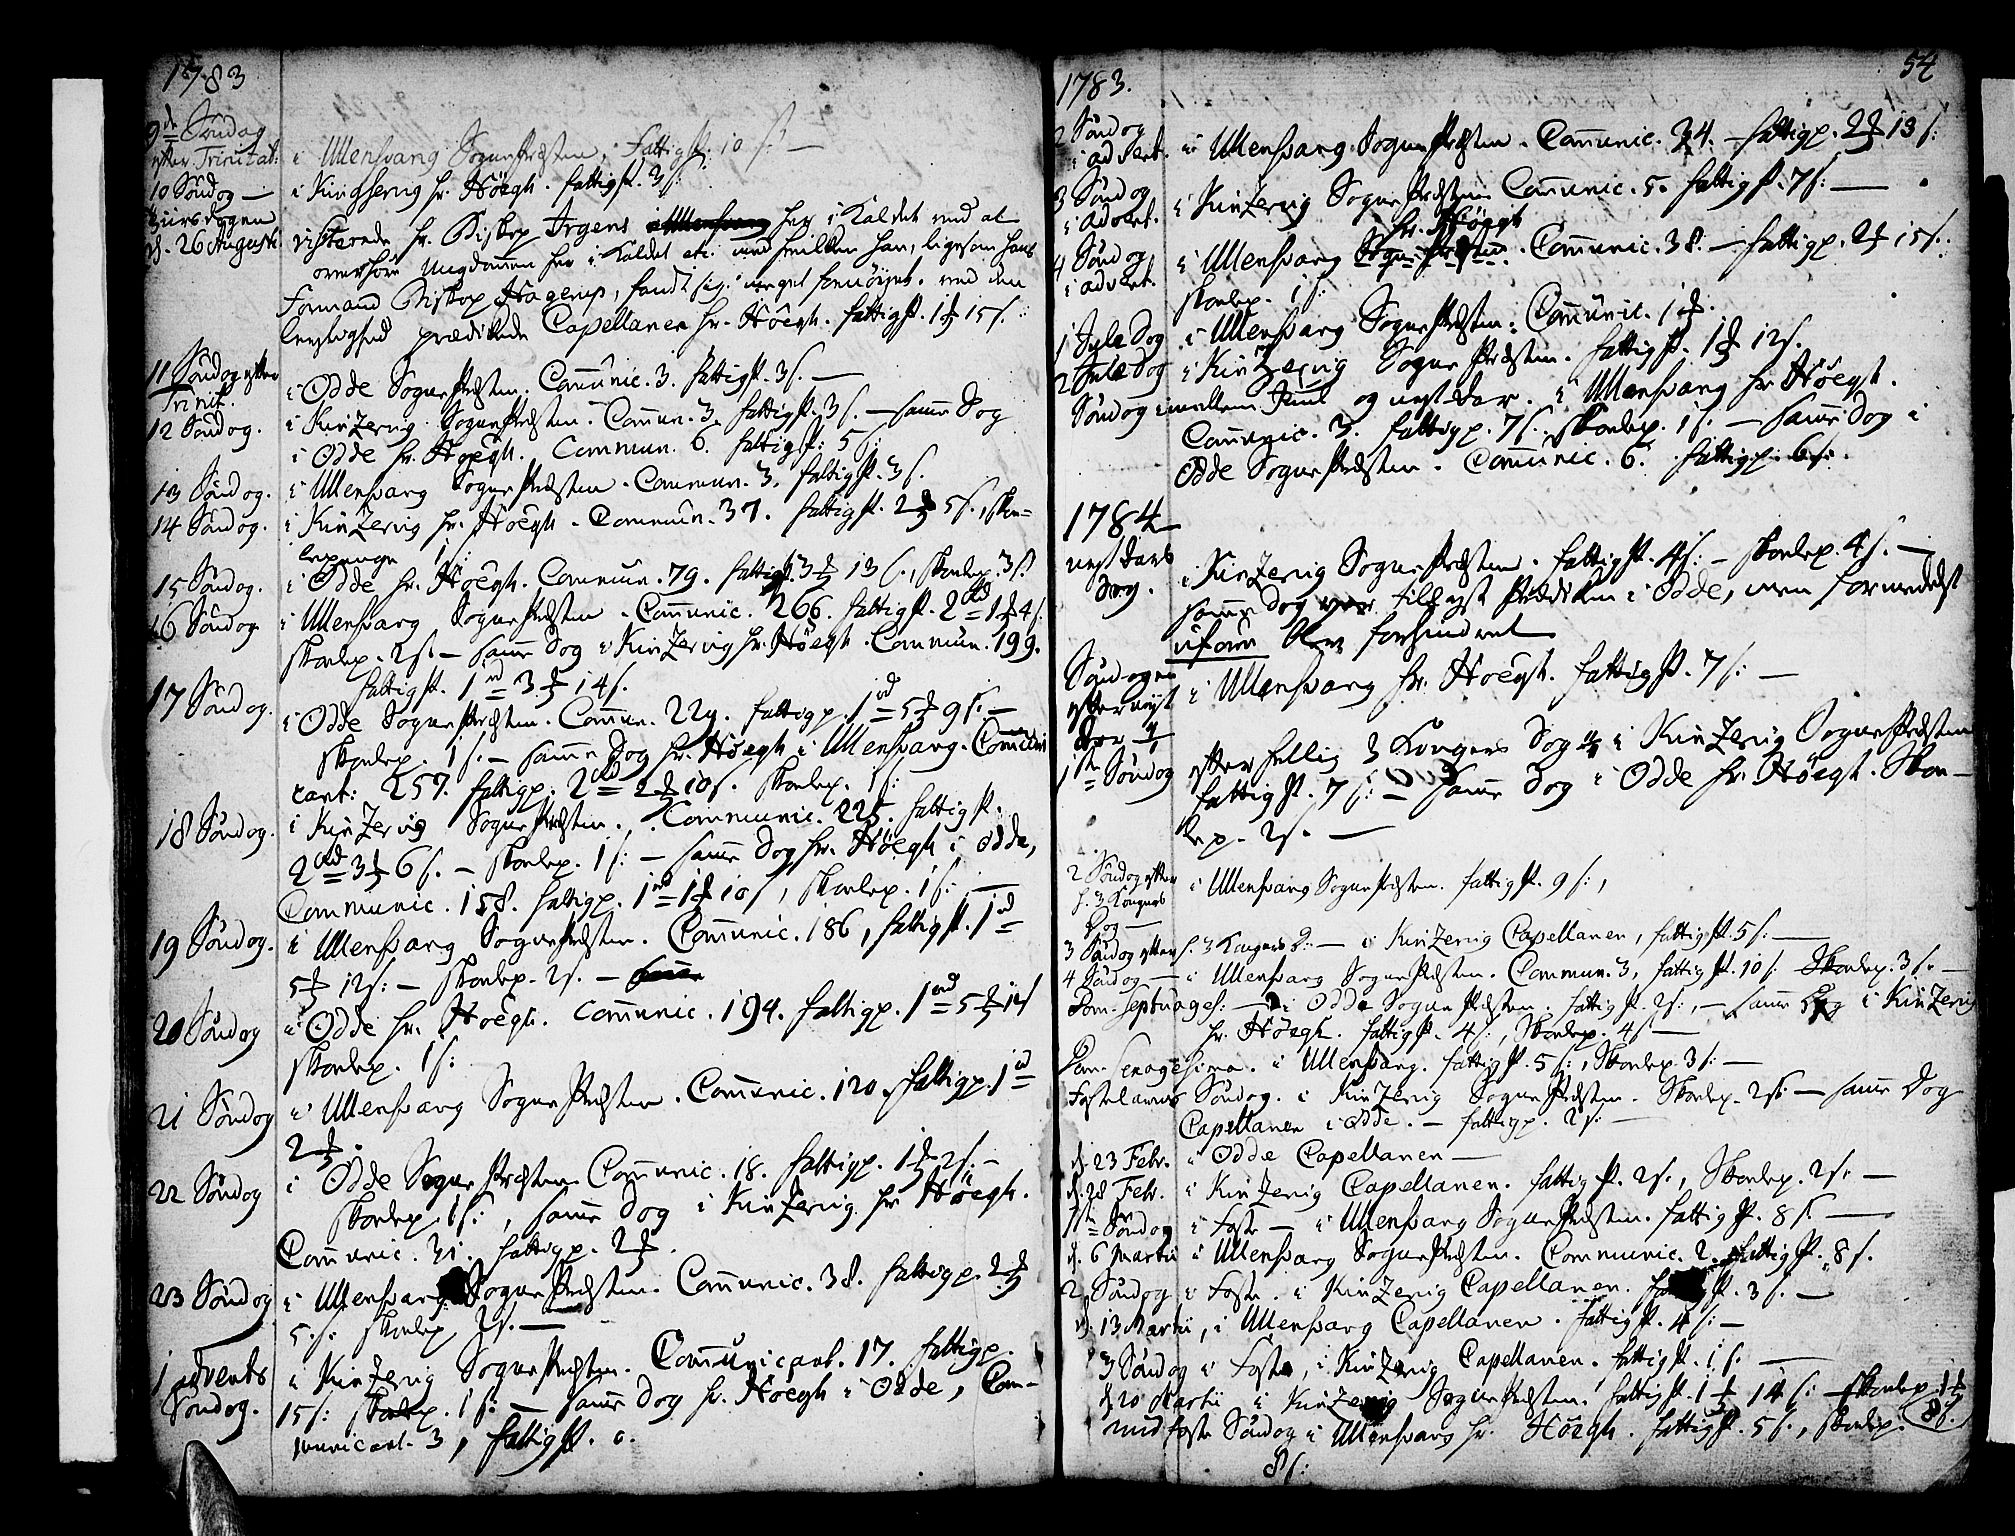 1783
9de Søndag
efter Trinitat: i Ullensvang Sogne Præsten, fattigp. 10 s. —
10 Søndag — i Kinsherwig hr. Höegh. fattigp. 3 s.
Tirsdagen
d. 26 Augusti visiterede hr. Biskop Irgens her i Kaldet med at
overhøre Ungdommen her i Kaldet etc: med hvilken han, ligesom hans
Formand Biskop Hagerup, fandt sig meget fornöyet. ved den
leylighed prædikede Capellanen hr. Höegh. fattigp. 1 15 s.
11 Søndag efter
Trinit. i Odde Sogne Præsten. Com̅unic. 3. fattigp. 3 s. —
12 Søndag. i Kinzerwig Sogne Præsten. Com̅un. 3. fattigp. 3 s. — sam̅e Dag
i Odde hr. Höegh. Commun. 6. fattigp. 5 s.
13 Søndag. i Ullensvang Sogne Præsten. Commun. 3. fattigp. 3 s.
14 Søndag. i Kinzerwig hr. Höegh. Commun. 37. fattigp. 2 5 s., skov=
lepenge 1 s:
15 Søndag. i Odde hr. Höegh. Commun. 79. fattigp. 3 13 s., skovlep. 3 s.
16 Søndag i Ullensvang Sogne Præsten. Com̅unic. 266. fattigp. 2 rd 1 4 s.
skovlep. 2 s. — sam̅e Dag i Kinzerwig hr. Höegh. Commun. 199.
fattigp. 1 rd 3 14 s.
17 Søndag. i Odde Sogne Præsten. Com̅un. 229. fattigp. 1 rd 5 9 s. —
skovlep. 1 s. — sam̅e Dag hr. Höegh i Ullensvang. Com̅uni
cant: 257. fattigp. 2 rd 2 10 s. skovlep. 1 s:
18 Søndag. i Kinzerwig Sogne Præsten. Communic. 225. fattigp.
2 rd 3 6 s. — skovlep. 1 s: — sam̅e Dag hr. Höegh i Odde,
Communic. 158. fattigp. 1 rd 1 10 s, skovlep. 1 s: —
19 Søndag. i Ullensvang Sogne Præsten. Com̅unic. 186, fattigp. 1 rd
5 12 s: — skovlep. 2 s. —
20 Søndag i Odde hr. Höegh. Com̅unic. 194. fattigp. 1 rd 5 14 s
skovlep. 1 s:
21 Søndag i Ullensvang Sogne Præsten. Com̅unic. 120. fattigp. 1 rd
2
22 Søndag i Odde Sogne Præsten Com̅unic. 18. fattigp. 1 2 s. —
skovlep. 1 s:, sam̅e Dag i Kinzerwig hr Höegh.
Com̅unic. 31. fattigp. 2
23 Søndag i Ullensvang Sogne Præsten. Com̅unic. 38. fattigp. 2
5 s. skovlep 2 s. —
1 Advents
Søndag. i Kinzerwig Sogne Præsten. Com̅unicant. 17. fattigp.
15 s: skovlep. 1 s. — sam̅e Dag hr. Höegh i Odde, Com-
municant. 3, fattigp. 0.
54
1783.
2 Søndag
i advent. i Ullensvang Sogne Præsten. Com̅unic. 34. — fattigp. 2 13 s:
3 Søndag
i advent. i Kinzerwig Sogne Præsten Com̅unic. 5. fattigp. 7 s: —
hr. Höegh
4 Søndag
i advent. i Ullensvang Sogne Præsten. Com̅unic. 38. — fattigp. 2 15 s.
skovlep. 1 s:
1 Jule Dag i Ullensvang Sogne Præsten. Com̅unic. 1
2 Jule Dag i Kinzerwig Sogne Præsten. fattigp. 1 12 s.
Søndag imellem Juul og nyt-Aar. i Ullensvang hr Höegh.
Com̅unic. 3. fattigp. 7 s. skovlep. 1 s. — sam̅e Dag i
Odde Sogne Præsten. Com̅unic. 6. fattigp. 6 s.
1784
nyt Aars
Dag. i Kinzerwig Sogne Præsten. fattigp. 4 s: — skovlep. 4 s. —
sam̅e Dag var tillyst Prædiken i Odde, men formedelst
uføre blev forhindret
Søndagen
efter nyt
Aar i Ullensvang hr. Höegh. fattigp. 7 s: —
1ste Søndag efter hellig 3 Kongers Dag i Kinzerwig Sogne Præsten
fattigp. 7 s: — sam̅e Dag i Odde hr. Höegh. Skov-
lep. 2 s. —
2 Søndag efter
h. 3 Kongers
Dag — i Ullensvang Sogne Præsten. fattigp. 9 s:,
3 Søndag efter h. 3 Kongers D: — i Kinzerwig Capellanen, fattigp. 5 s. —
4 Søndag — i Ullensvang Sogne Præsten. Commun. 3, fattigp. 10 s. Skovlep. 3 s. —
Dom. septuages: — i Odde Sogne Præsten fattigp. 2 s:, — sam̅e Dag i Kinzerwig
hr. Höegh. fattigp. 4 s:, Skovlep. 4 s —
Dom. Sexagesima. i Ullensvang. fattigp. 5 s:, Skovlep. 3 s: —
Fastelavns Søndag. i Kinzerwig Sogne Præsten. Skovlep. 2 s. — sam̅e Dag
Capellanen i Odde. — fattigp. 2 s: —
d. 23 Febr. i Odde Capellanen —
d. 28 Febr. i Kinzerwig Capellanen. fattigp. 2 s., Skovlep. 2 s. —
1ste Søndag i Faste — i Ullensvang Sogne Præsten. fattigp. 8 s. —
d. 6 Martii i Ullensvang Sogne Præsten. Communic. 2. fattigp. 8 s.
2 Søndag i Faste. i Kinzerwig Capellanen. 3 s. —
d. 13 Martii, i Ullensvang Capellanen. fattigp. 4 s: —
3 Søndag i Faste, i Kinzerwig Capellanen. fattigp. 1 s. —
d. 20 Martii i Kinzerwig Sogne Præsten. fattigp. 1 14 s: — skovlep. 1
8 s.
mid faste Søndag i Ullensvang hr. Höegh. fattigp. 5 s., skovlep.
8 s: